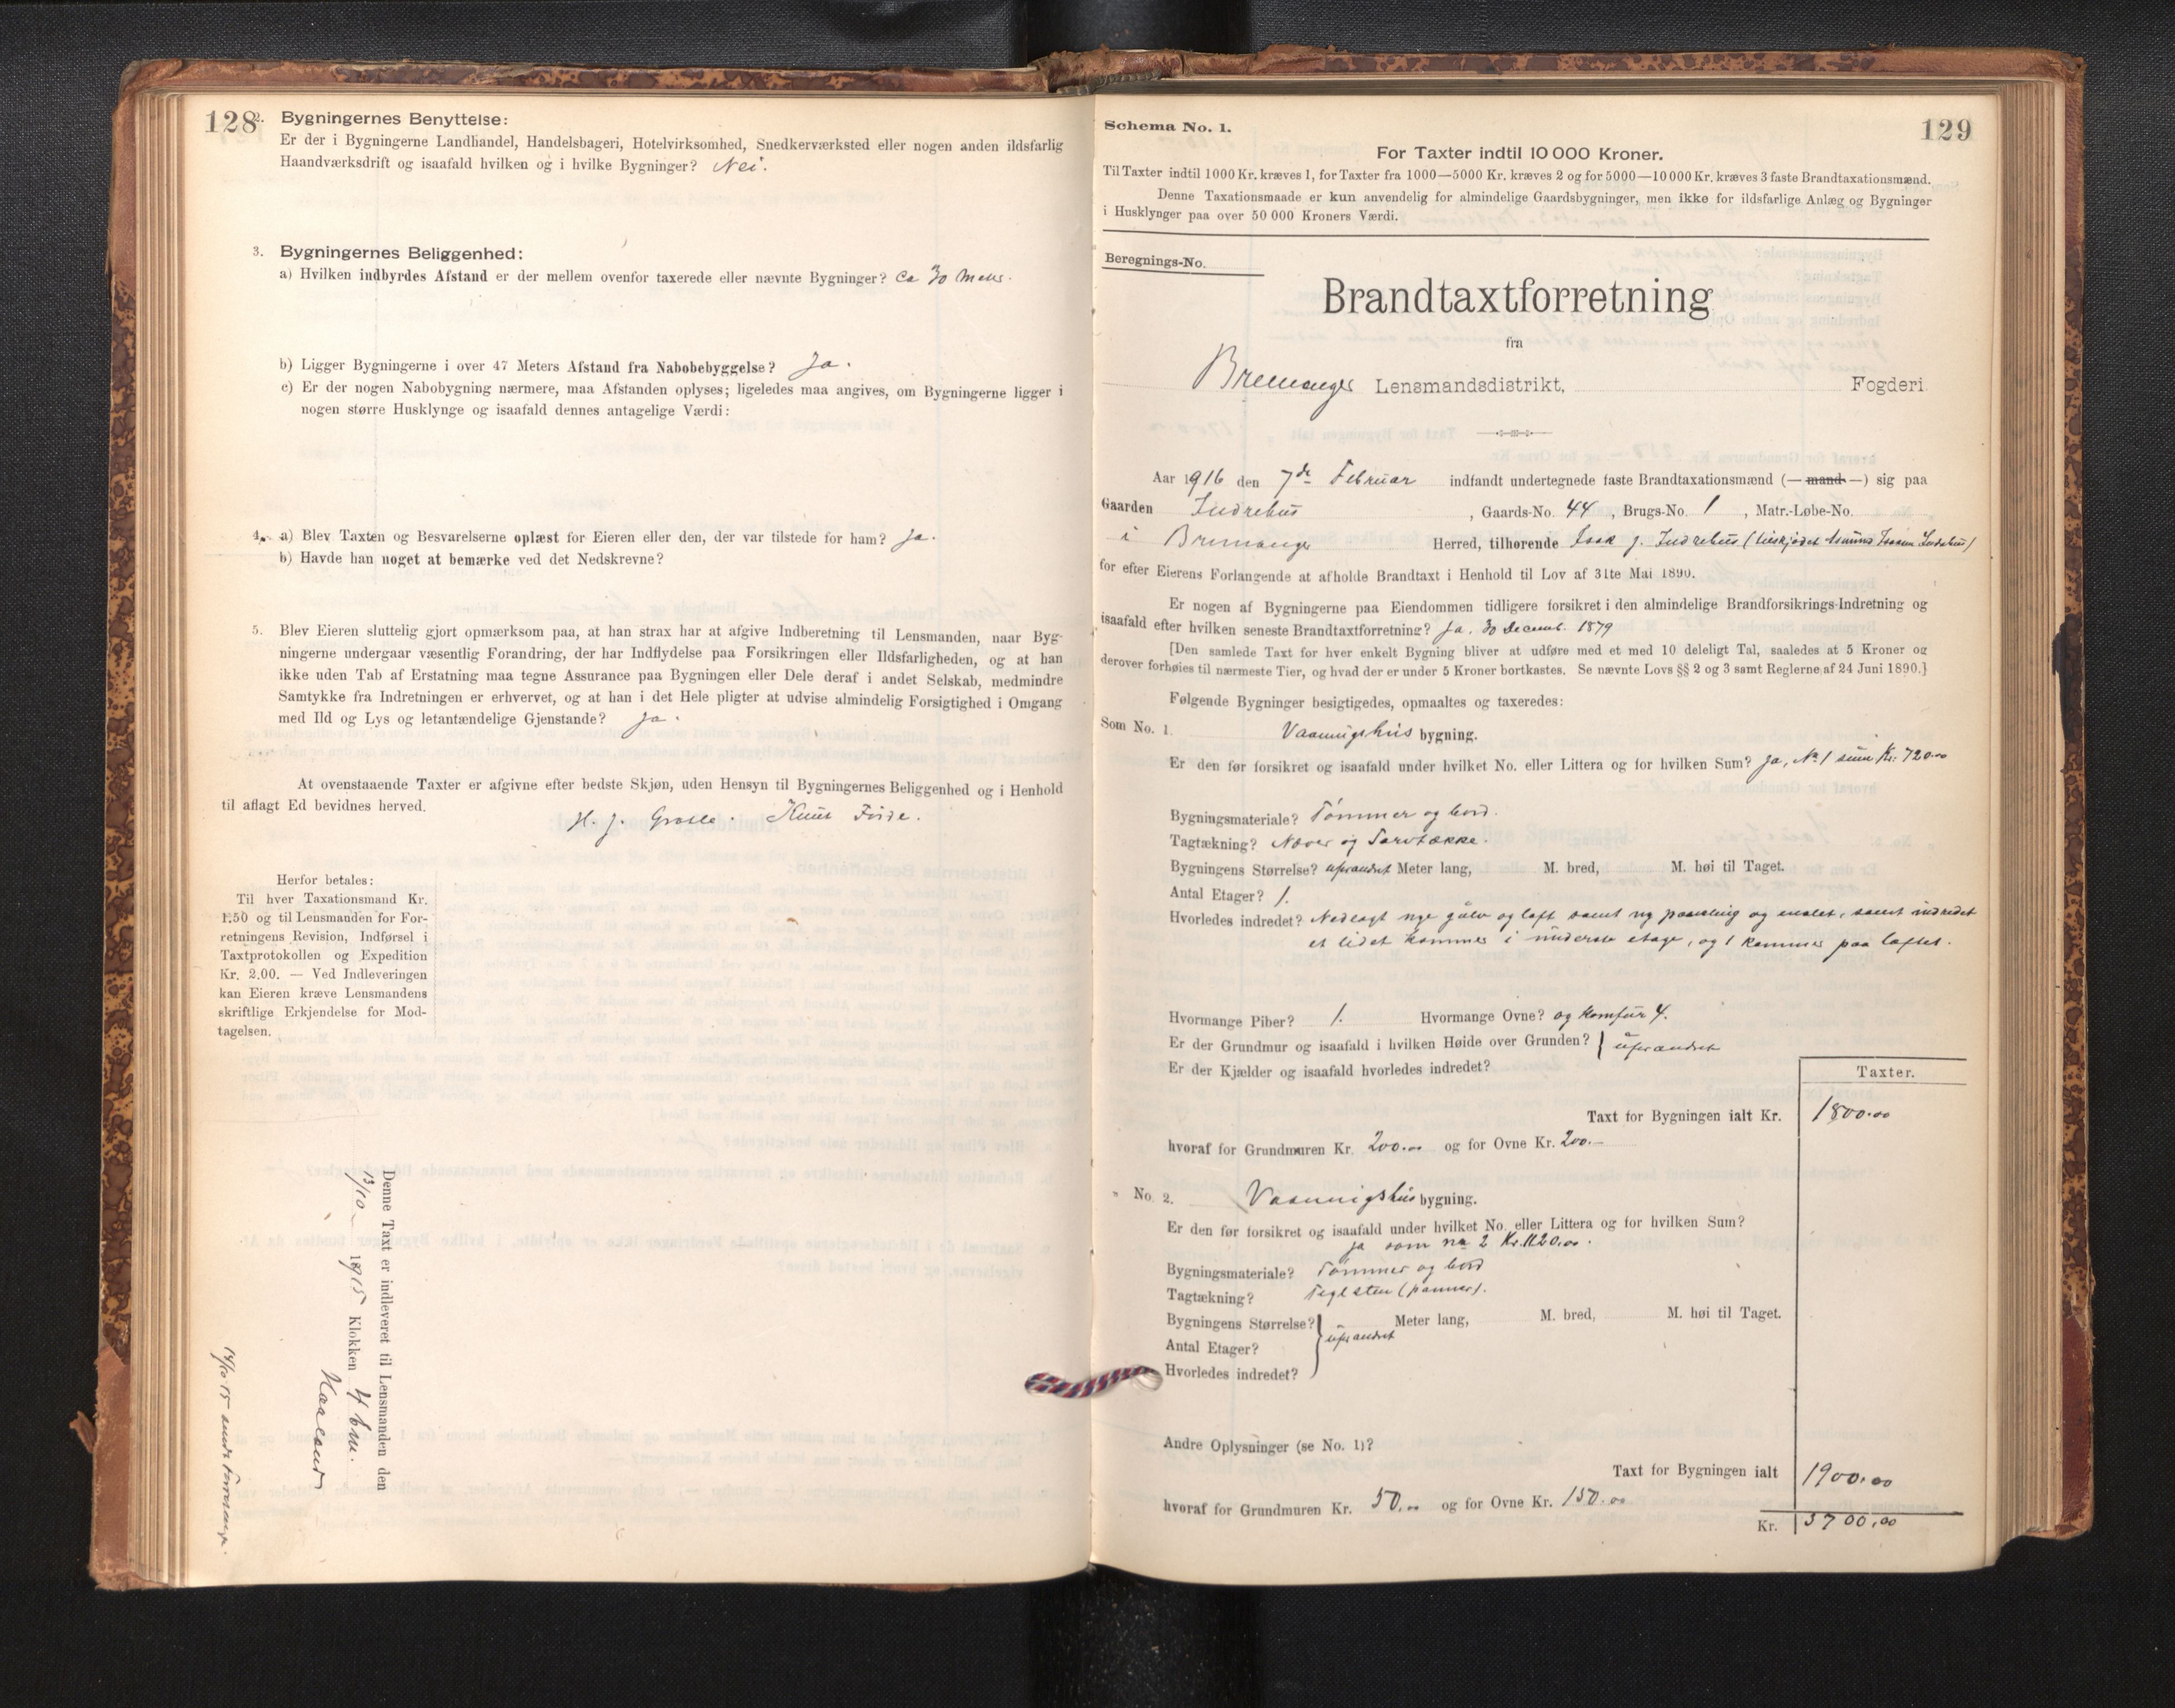 128
2. Bygningernes Benyttelse:
Er der i Bygningerne Landhandel, Handelsbageri, Hotelvirksomhed, Snedkerværksted eller nogen anden ildsfarlig
Haandværksdrift og isaafald hvilken og i hvilke Bygninger? Nei.
3. Bygningernes Beliggenhed:
a) Hvilken indbyrdes Afstand er der mellem ovenfor taxerede eller nævnte Bygninger? Ca 30 Meter.
b) Ligger Bygningerne i over 47 Meters Afstand fra Nabobebyggelse? Ja.
c) Er der nogen Nabobygning nærmere, maa Afstanden oplyses; ligeledes maa angives, om Bygningerne ligger i
nogen større Husklynge og isaafald dennes antagelige Værdi:
4. a) Blev Taxten og Besvarelserne oplæst for Eieren eller den, der var tilstede for ham? Ja.
b) Havde han noget at bemærke ved det Nedskrevne?
5. Blev Eieren sluttelig gjort opmærksom paa, at han strax har at afgive Indberetning til Lensmanden, naar Byg-
ningerne undergaar væsentlig Forandring, der har Indflydelse paa Forsikringen eller Ildsfarligheden, og at han
ikke uden Tab af Erstatning maa tegne Assurance paa Bygningen eller Dele deraf i andet Selskab, medmindre
Samtykke fra Indretningen er erhvervet, og at han i det Hele pligter at udvise almindelig Forsigtighed i Omgang
med Ild og Lys og letantændelige Gjenstande? Ja.
At ovenstaaende Taxter er afgivne efter bedste Skjøn, uden Hensyn til Bygningernes Beliggenhed og i Henhold
til aflagt Ed bevidnes herved.
H. J. Grotle. Knut Förde.
Herfor betales:
Til hver Taxationsmand Kr.
1.50 og til Lensmanden for For-
retningens Revision, Indførsel i
Taxtprotokollen og Expedition
Kr. 2.00. — Ved Indleveringen
kan Eieren kræve Lensmandens
skriftlige Erkjendelse for Mod-
tagelsen.
Denne Taxt er indleveret til Lensmanden den
13/10 1915 Klokken 4 em.
Haaland
14/10 15
129
Schema No. 1.
For Taxter indtil 10 000 Kroner.
Til Taxter indtil 1000 Kr. kræves 1, for Taxter fra 1000—5000 Kr. kræves 2 og for 5000—10 000 Kr. kræves 3 faste Brandtaxationsmænd.
Denne Taxationsmaade er kun anvendelig for almindelige Gaardsbygninger, men ikke for ildsfarlige Anlæg og Bygninger
i Husklynger paa over 50 000 Kroners Værdi.
Beregnings-No.
Brandtaxtforretning
fra
Bremanger Lensmandsdistrikt, Fogderi
Aar 1916 den 7de Februar indfandt undertegnede faste Brandtaxationsmænd (— mand —) sig paa
Gaarden Indrehus, Gaards-No. 44, Brugs-No. 1, Matr.-Løbe-No.
i Bremanger Herred, tilhørende Isak J. Indrehus (
for efter Eierens Forlangende at afholde Brandtaxt i Henhold til Lov af 31te Mai 1890.
Er nogen af Bygningerne paa Eiendommen tidligere forsikret i den almindelige Brandforsikrings-Indretning og
isaafald efter hvilken seneste Brandtaxtforretning? Ja. 30 Decemb. 1879
[Den samlede Taxt for hver enkelt Bygning bliver at udføre med et med 10 deleligt Tal, saaledes at 5 Kroner og
derover forhøies til nærmeste Tier, og hvad der er under 5 Kroner bortkastes. Se nævnte Lovs §§ 2 og 3 samt Reglerne af 24 Juni 1890.]
Følgende Bygninger besigtigedes, opmaaltes og taxeredes:
Som No. 1. Vaaningshus bygning.
Er den før forsikret og isaafald under hvilket No. eller Littera og for hvilken Sum? Ja, No 1 sum Kr. 720.00
Bygningsmateriale? Tømmer og bord.
Tagtækning? Næver og Torvtække.
Bygningens Størrelse? uforandret Meter lang, M. bred, M. høi til Taget.
Antal Etager? 1.
Hvorledes indredet? Nedlagt nye gulv og loft samt ny paneling og malet, samt indredet
et lidet kammer i underste etage, og 1 kammer paa loftet.
Hvormange Piber? 1. Hvormange Ovne? og Komfur 4.
Er der Grundmur og isaafald i hvilken Høide over Grunden? } uforandret
Er der Kjælder og isaafald hvorledes indredet?
Taxter.
Taxt for Bygningen ialt Kr. 1800.00
hvoraf for Grundmuren Kr. 200.00 og for Ovne Kr. 200.—
" No. 2. Vaaningshus bygning.
Er den før forsikret og isaafald under hvilket No. eller Littera og for hvilken Sum?
ja som no 2 Kr. 1120.00.
Bygningsmateriale? Tømmer og bord
Tagtækning? Teglsten (panner).
Bygningens Størrelse? } uforandret Meter lang, M. bred, M. høi til Taget.
Antal Etager?
Hvorledes indredet?
Andre Oplysninger (se No. 1)?
Taxt for Bygningen ialt 1900.00
hvoraf for Grundmuren Kr. 50.00 og for Ovne Kr. 150.00
Kr. 3700.00